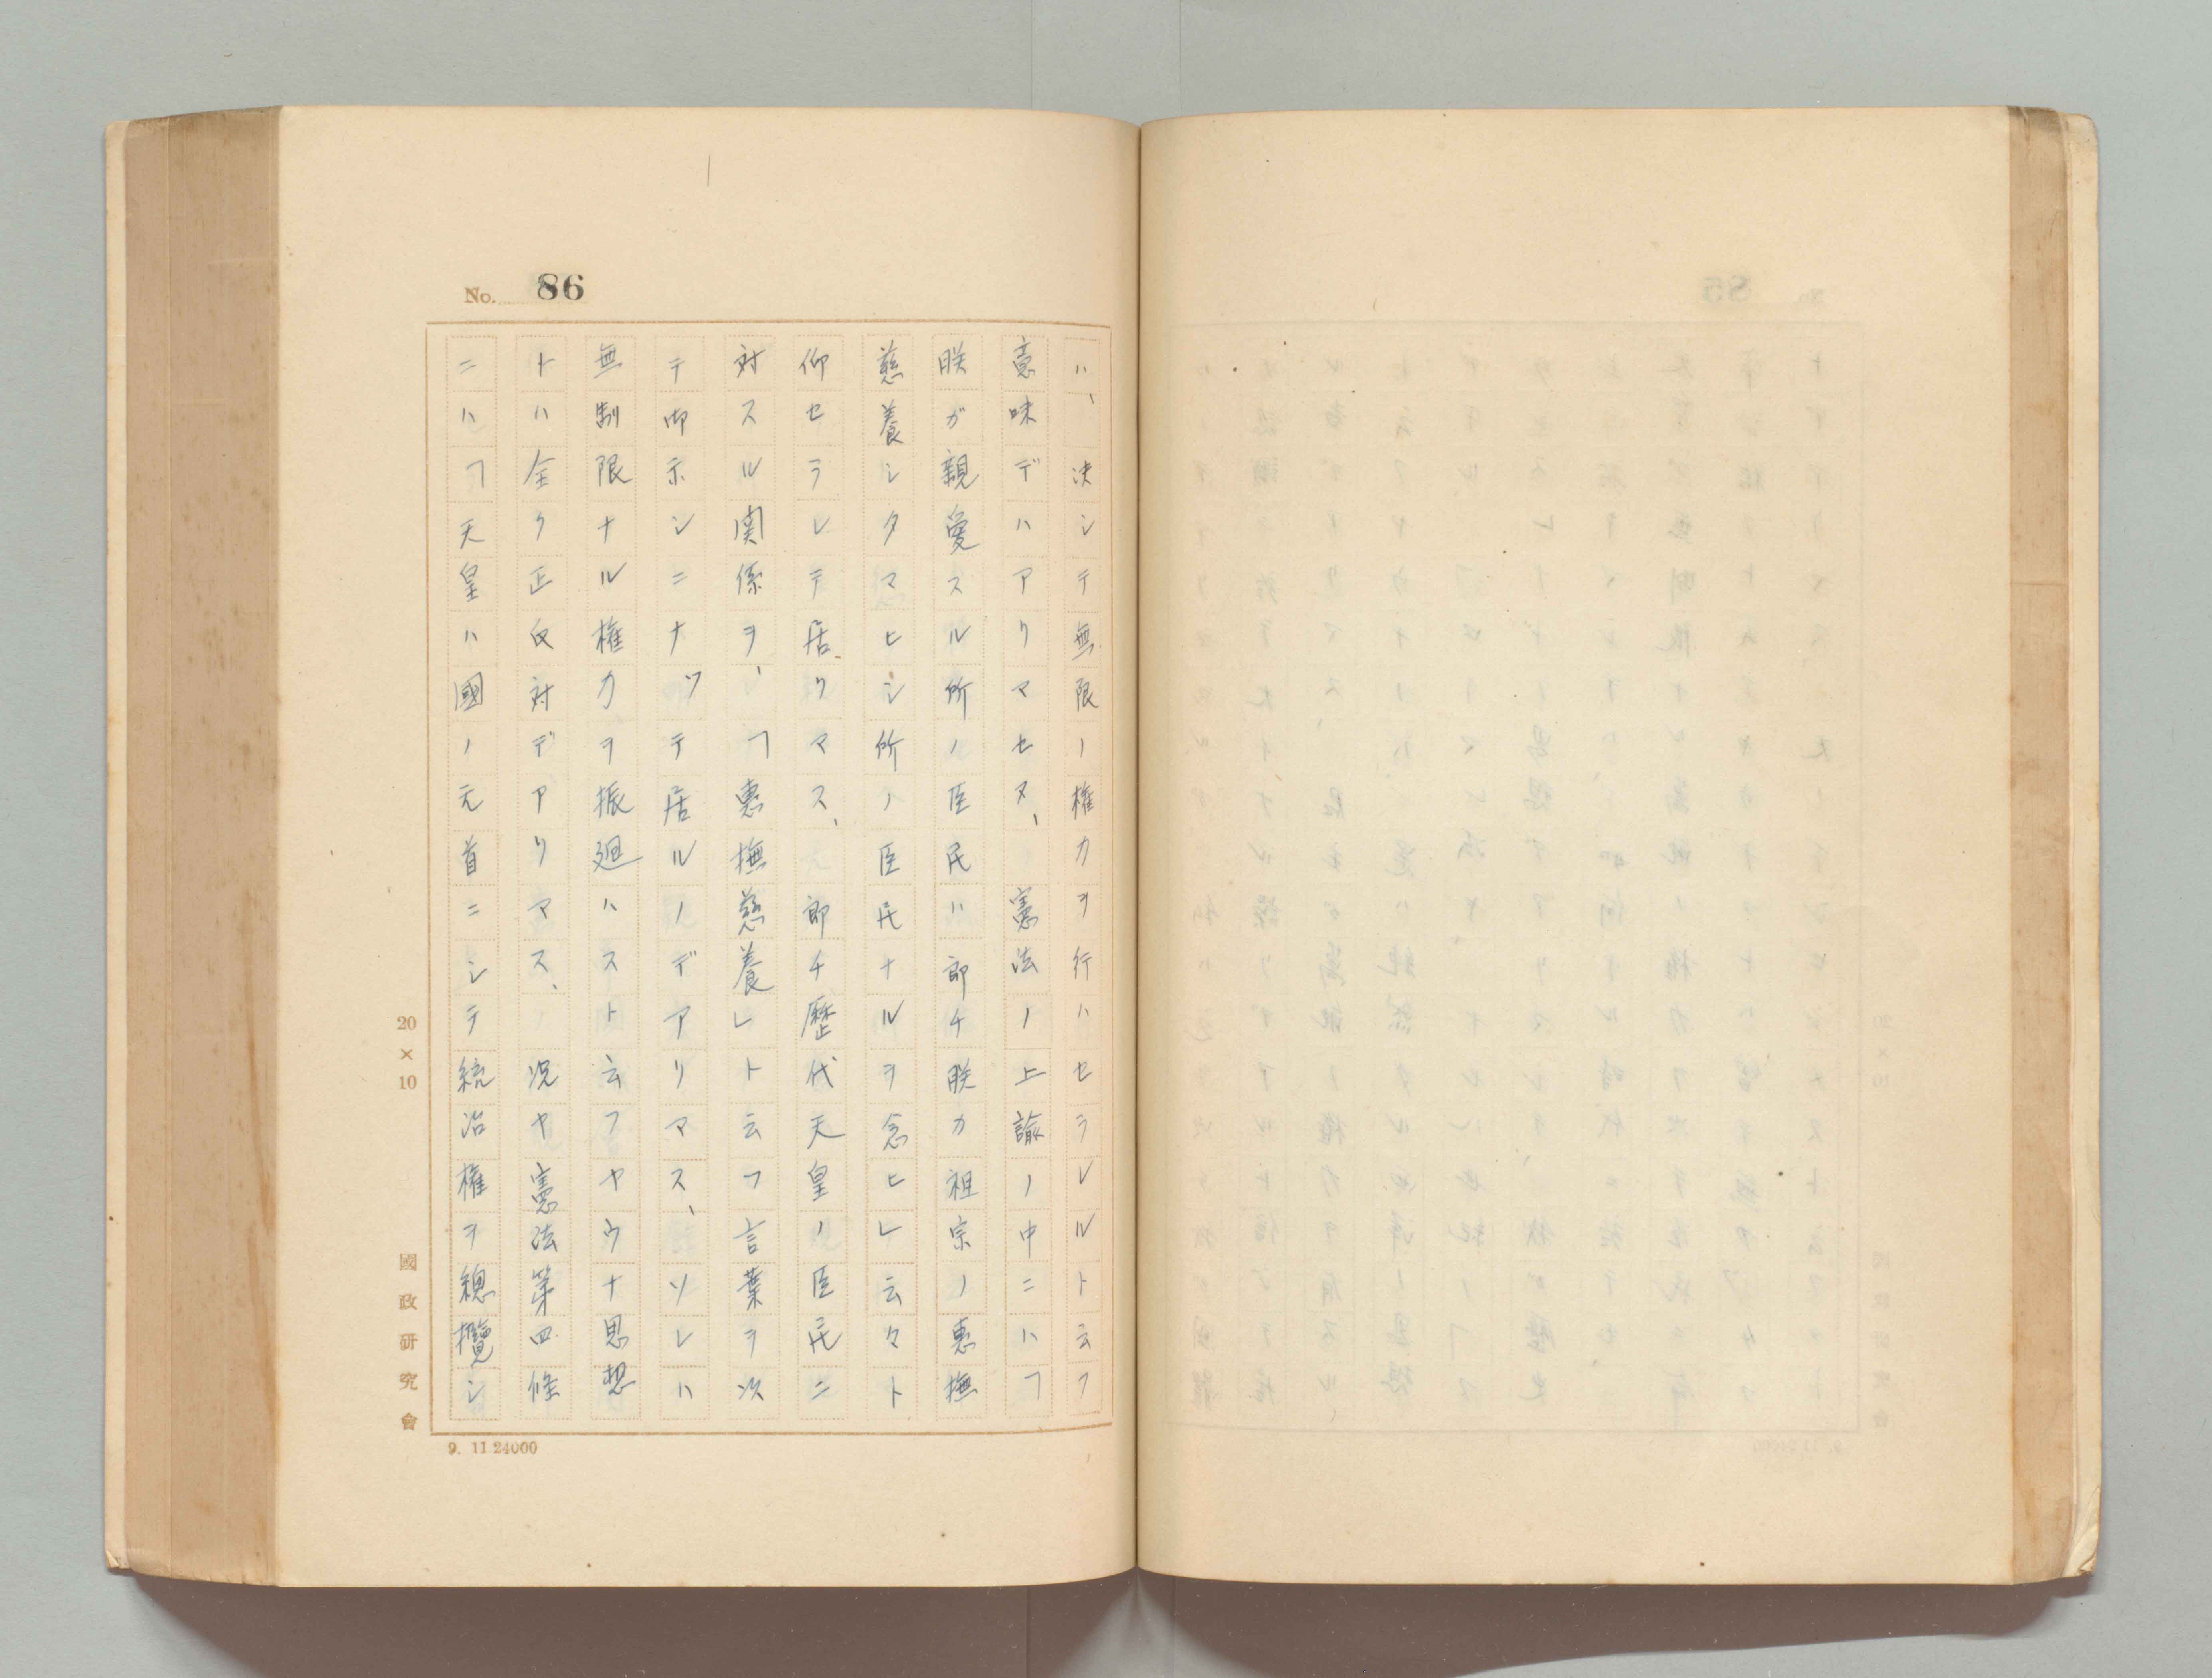 No. 86
ハ、決シテ無限ノ権力ヲ行ハセラレルト云フ
意味デハアリマセヌ、憲法ノ上諭ノ中ニハ「
朕ガ親愛スル所ノ臣民ハ即チ朕カ祖宗ノ恵撫
慈養シタマヒシ所ノ臣民ナルヲ念ヒ」云々ト
仰セラレテ居リマス、即チ歴代天皇ノ臣民ニ
対スル関係ヲ、「恵撫慈養」ト云フ言葉ヲ以
テ御示シニナツテ居ルノデアリマス、ソレハ
無制限ナル権力ヲ振廻ハスト云フヤウナ思想
トハ全ク正反対デアリマス、況ヤ憲法第四條
ニハ「天皇ハ國ノ元首ニシテ統治権ヲ總攬シ
20×10
國政研究會
9. 11 24000